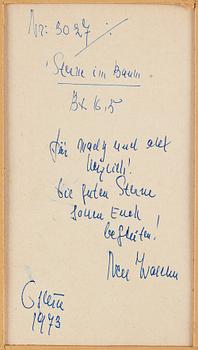 Nr: 3027
Sterne im Baum
34 x 16,5
für Mady und
herzlich!
Die guten Sterne
sollen Euch
begleiten!
Gstein
1973